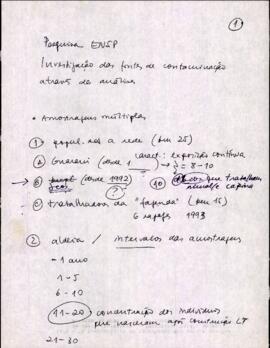 ①
Pesquisa ENSP
Investigação das fontes de contaminação
através de análises
• Amostragens múltiplas
① popul. nos a rede (km 25)
(desde 1 caract: exposição contínua
= 8-10
(desde 1992) ? 10 que trabalham
© trabalhadores da "fazenda" (km 15)
6 1993
② aldeia / intervalos das amostragens
- 1 ano
1 - 5
6 - 10
11-20 concentração dos indivíduos
que nasceram após construção LT
21-30